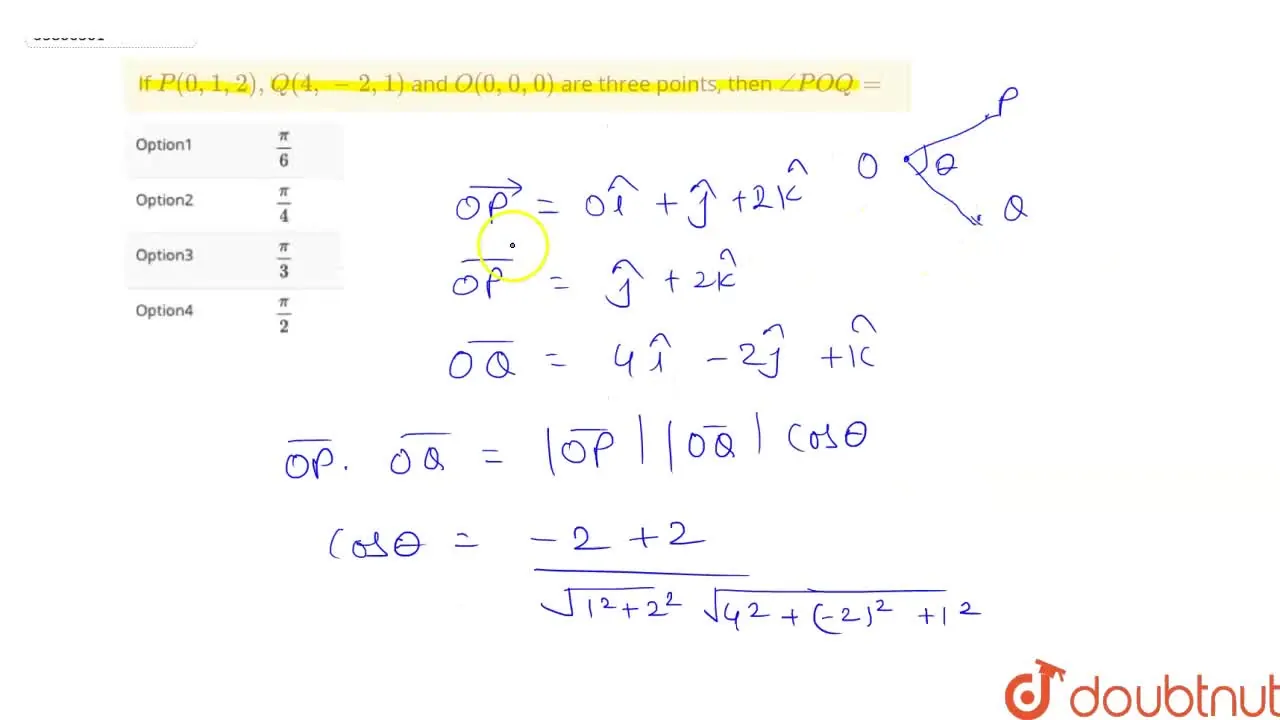 If P(0, 1, 2), Q(4, −2, 1) and O(0, 0, 0) are three points, then ∠POQ =
Option1 π/6
Option2 π/4
Option3 π/3
Option4 π/2
P
O θ
Q
OP⃗ = 0î + ĵ + 2k̂
O̅P̅ = ĵ + 2k̂
O̅Q̅ = 4î − 2ĵ + k̂
O̅P̅ . O̅Q̅ = |O̅P̅| |O̅Q̅| cosθ
cosθ = −2 + 2
√1² + 2² √4² + (−2)² + 1²
doubtnut